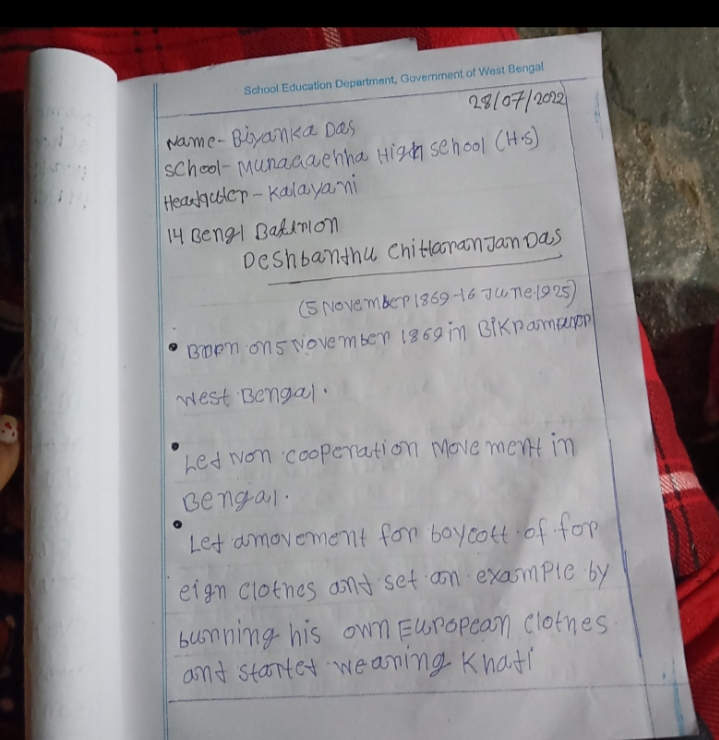 School Education Department, Government of West Bengal
28/07/2022
Name- Biyanka Das
School- High School (H.S)
Headquter - Kalayani
14 Bengl Battalion
Deshbandhu Chittaranjan Das
(5 November 1869-16 June 1925)
• Born on 5 November 1869 in Bikrampur
West Bengal.
• Led Non cooperation Movement in
Bengal.
• Led a movement for boycott of for
eign clothes and set an example by
burning his own European clothes
and started wearing Khadi